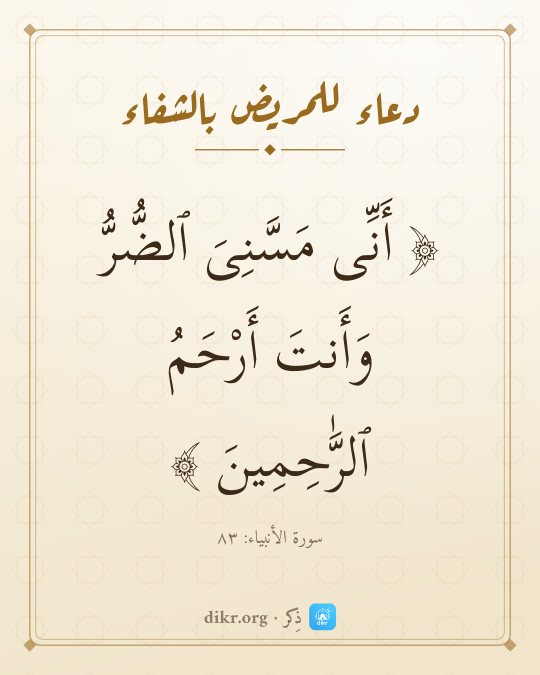 دعاء للمريض بالشفاء
﴿ أَنِّى مَسَّنِىَ ٱلضُّرُّ
وَأَنتَ أَرْحَمُ
ٱلرَّٰحِمِينَ ﴾
سورة الأنبياء: ٨٣
ذِكر · dikr.org
dikr